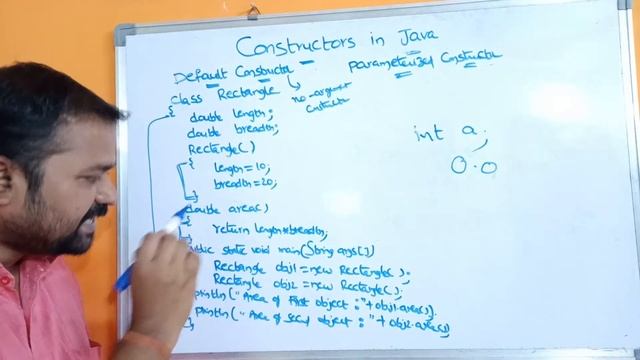 Constructors in Java
Default Constructor
parameterized Constructor
no-argument
Constructor
class Rectangle
{
double length;
double breadth;
Rectangle()
{
length=10;
breadth=20;
}
double area()
{
return length*breadth;
}
public static void main(String args[])
Rectangle obj1=new Rectangle();
Rectangle obj2=new Rectangle();
println("Area of First object:"+obj1.area());
println("Area of second object:"+obj2.area());
int a;
0.0